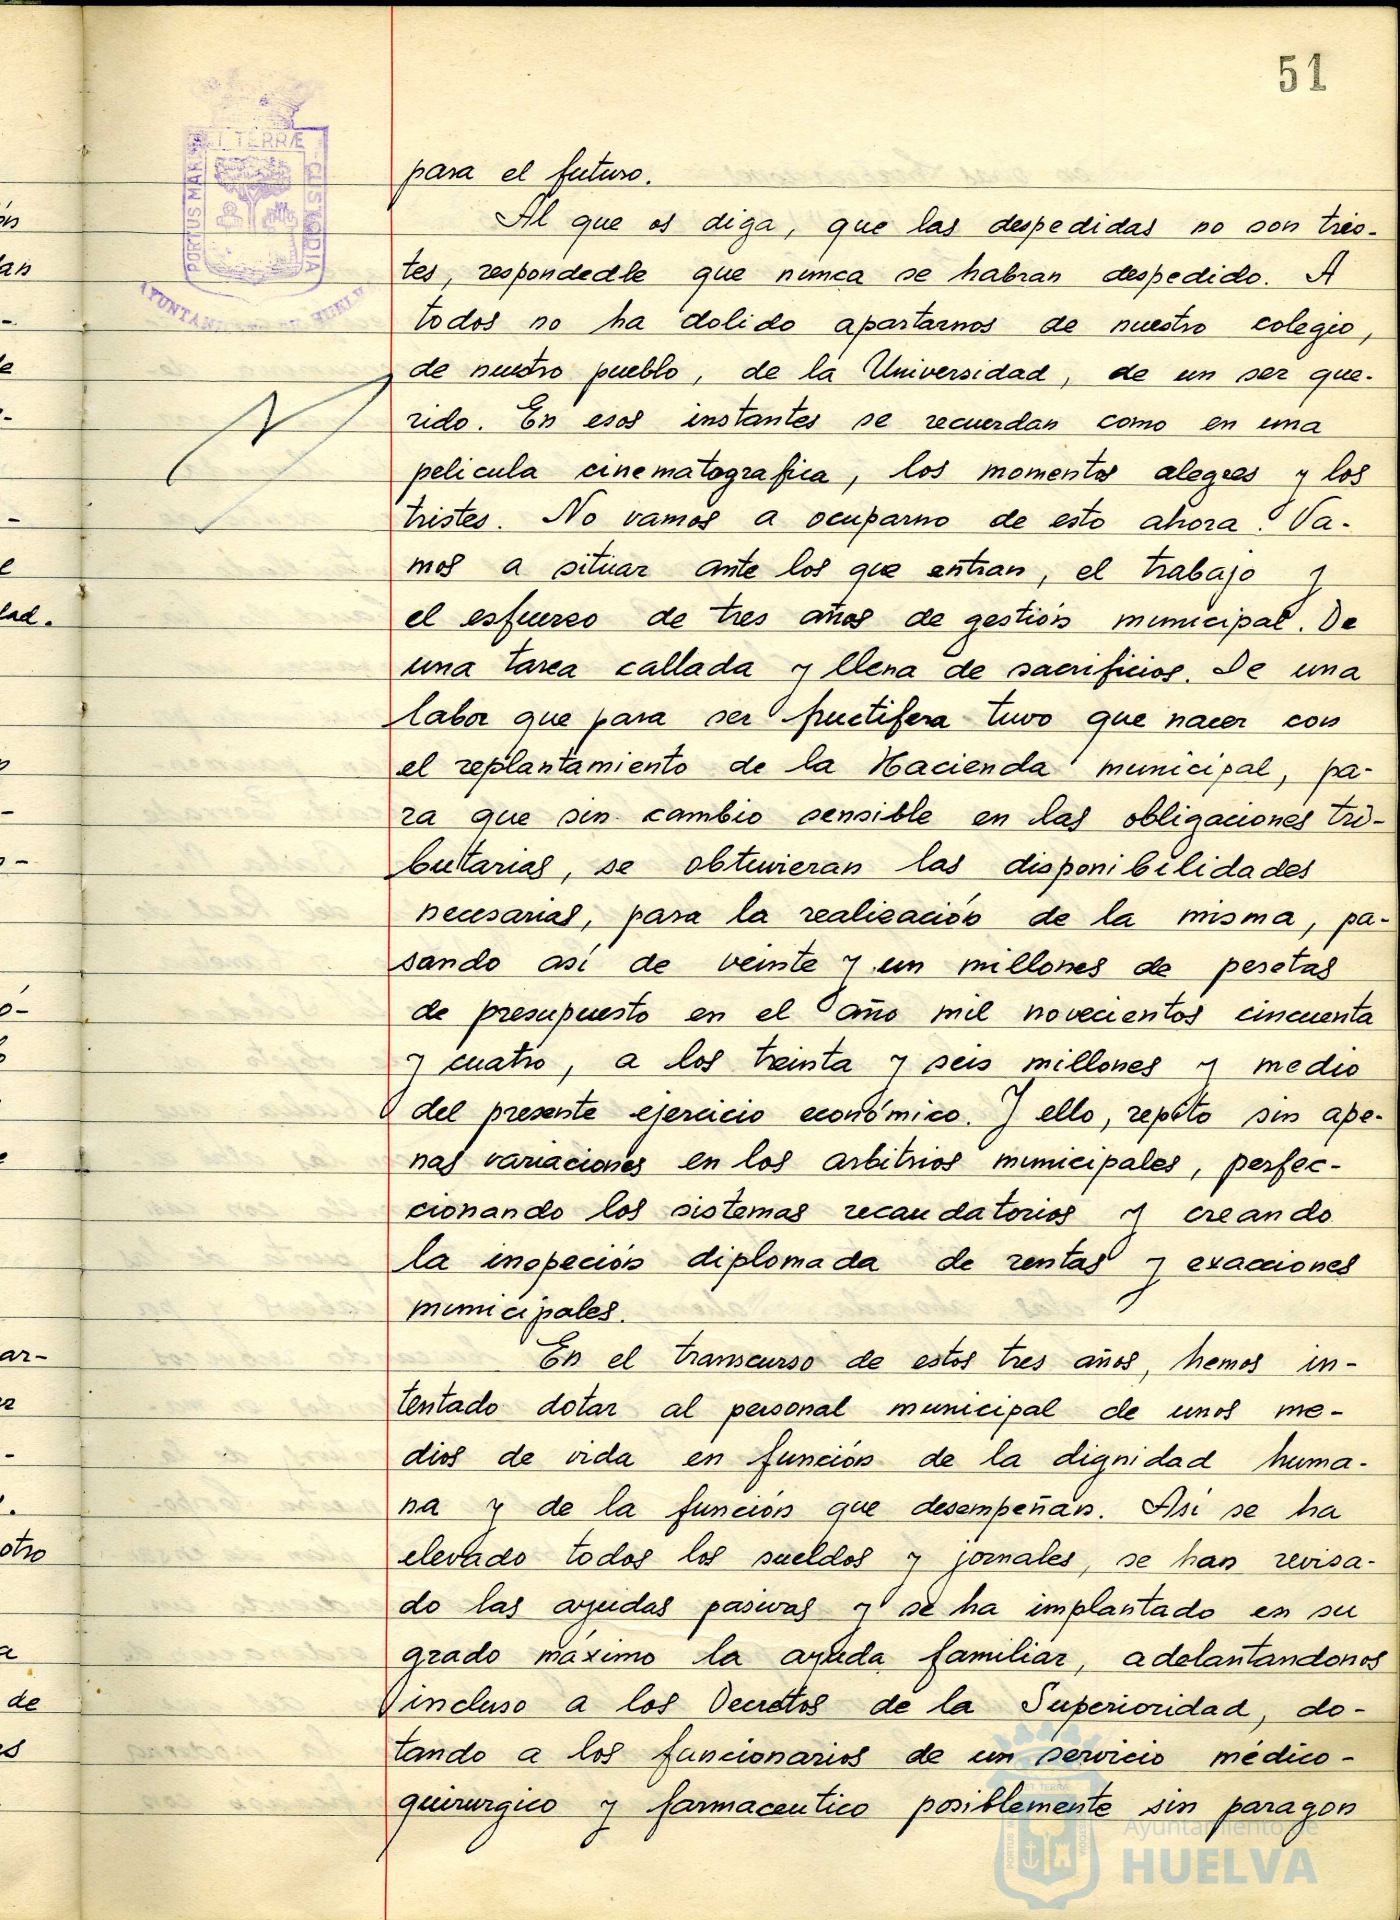 51
ET TERRÆ
PORTUS MARIS
CUSTODIA
AYUNTAMIENTO DE HUELVA
para el futuro.
Al que os diga, que las despedidas no son tris-
tes, respondedle que nunca se habran despedido. A
todos no ha dolido apartarnos de nuestro colegio,
de nuestro pueblo, de la Universidad, de un ser que-
rido. En esos instantes se recuerdan como en una
pelicula cinematografica, los momentos alegres y los
tristes. No vamos a ocuparno de esto ahora. Va-
mos a situar ante los que entran, el trabajo y
el esfuerzo de tres años de gestión municipal. De
una tarea callada y llena de sacrificios. De una
labor que para ser fructifera tuvo que nacer con
el replantamiento de la Hacienda municipal, pa-
ra que sin cambio sensible en las obligaciones tri-
butarias, se obtuvieran las disponibilidades
necesarias, para la realización de la misma, pa-
sando así de veinte y un millones de pesetas
de presupuesto en el año mil novecientos cincuenta
y cuatro, a los treinta y seis millones y medio
del presente ejercicio económico. Y ello, repito sin ape-
nas variaciones en los arbitrios municipales, perfec-
cionando los sistemas recaudatorios y creando
la inspeción diplomada de rentas y exacciones
municipales.
En el transcurso de estos tres años, hemos in-
tentado dotar al personal municipal de unos me-
dios de vida en función de la dignidad huma-
na y de la función que desempeñan. Así se ha
elevado todos los sueldos y jornales, se han revisa-
do las ayudas pasivas y se ha implantado en su
grado máximo la ayuda familiar, adelantandonos
incluso a los Decretos de la Superioridad, do-
tando a los funcionarios de un servicio médico-
quirurgico y farmaceutico posiblemente sin paragon
Ayuntamiento de
HUELVA